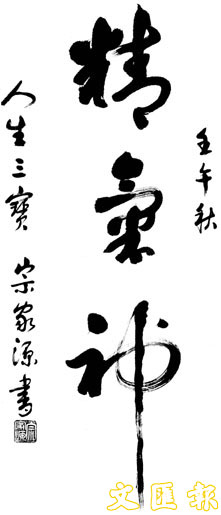 壬午秋
精氣神
人生三寶
宗家源書
文匯報